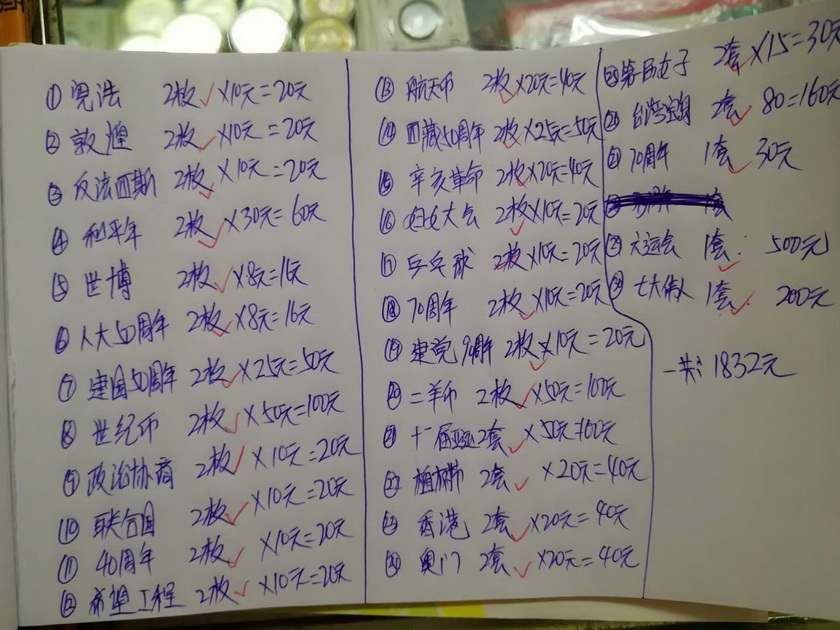 ① 宪法 2枚 ✓×10元=20元
② 敦煌 2枚 ✓×10元=20元
③ 反法西斯 2枚 ✓×10元=20元
④ 和平年 2枚 ✓×30元=60元
⑤ 世博 2枚 ✓×8元=16元
⑥ 人大50周年 2枚 ✓×8元=16元
⑦ 建国50周年 2枚 ✓×25元=50元
⑧ 世纪币 2枚 ✓×50元=100元
⑨ 政治协商 2枚 ✓×10元=20元
⑩ 联合国 2枚 ✓×10元=20元
⑪ 40周年 2枚 ✓×10元=20元
⑫ 希望工程 2枚 ✓×10元=20元
⑬ 航天币 2枚 ✓×20元=40元
⑭ 西藏50周年 2枚 ✓×25元=50元
⑮ 辛亥革命 2枚 ✓×20元=40元
⑯ 妇女大会 2枚 ✓×10元=20元
⑰ 乒乓球 2枚 ×10元=20元
⑱ 70周年 2枚 ✓×10元=20元
⑲ 建党90周年 2枚 ✓×10元=20元
⑳ 二羊币 2枚 ✓×50元=100元
㉑ 十一届亚运 2套 ✓×50元=100元
㉒ 植树节 2套 ✓×20元=40元
㉓ 香港 2套 ✓×20元=40元
㉔ 奥门 2套 ✓×20元=40元
㉕ 第一届女子 2套 ✓×15=30元
㉖ 台湾宝岛 2套 ✓ 80=160元
㉗ 70周年 1套 ✓ 30元
六运会 1套 ✓: 500元
七大伟人 1套 ✓ 200元
一共: 1832元